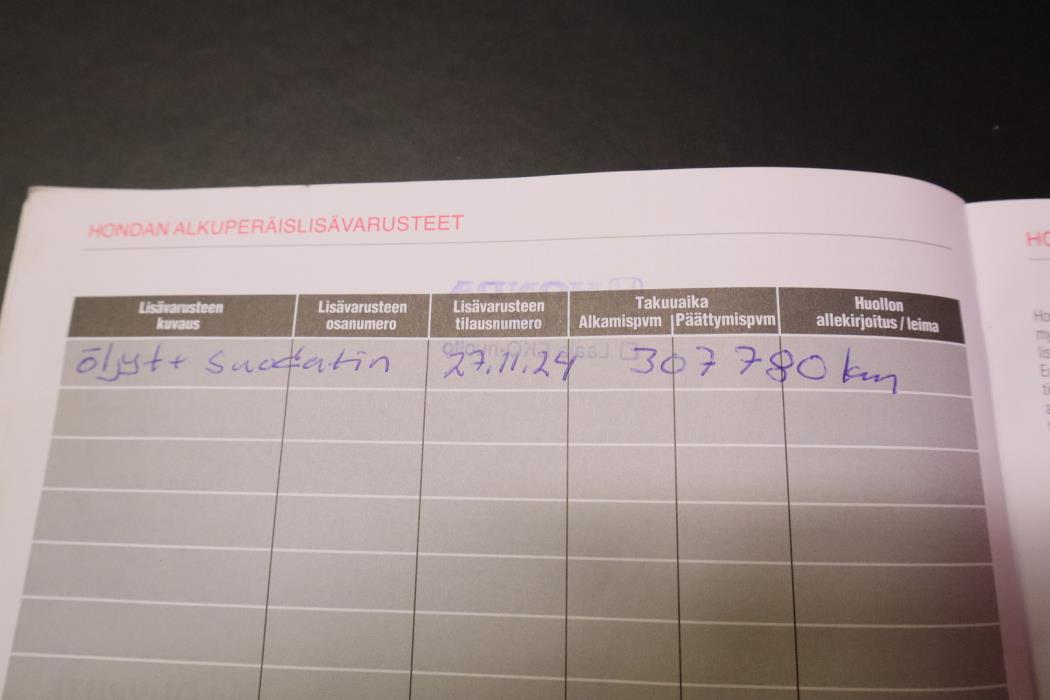 HONDAN ALKUPERÄISLISÄVARUSTEET
HO
Lisävarusteen kuvaus
Lisävarusteen osanumero
Lisävarusteen tilausnumero
Takuuaika
Alkamispvm
Päättymispvm
Huollon allekirjoitus / leima
öljyt + suodatin 27.11.24 307 780 km